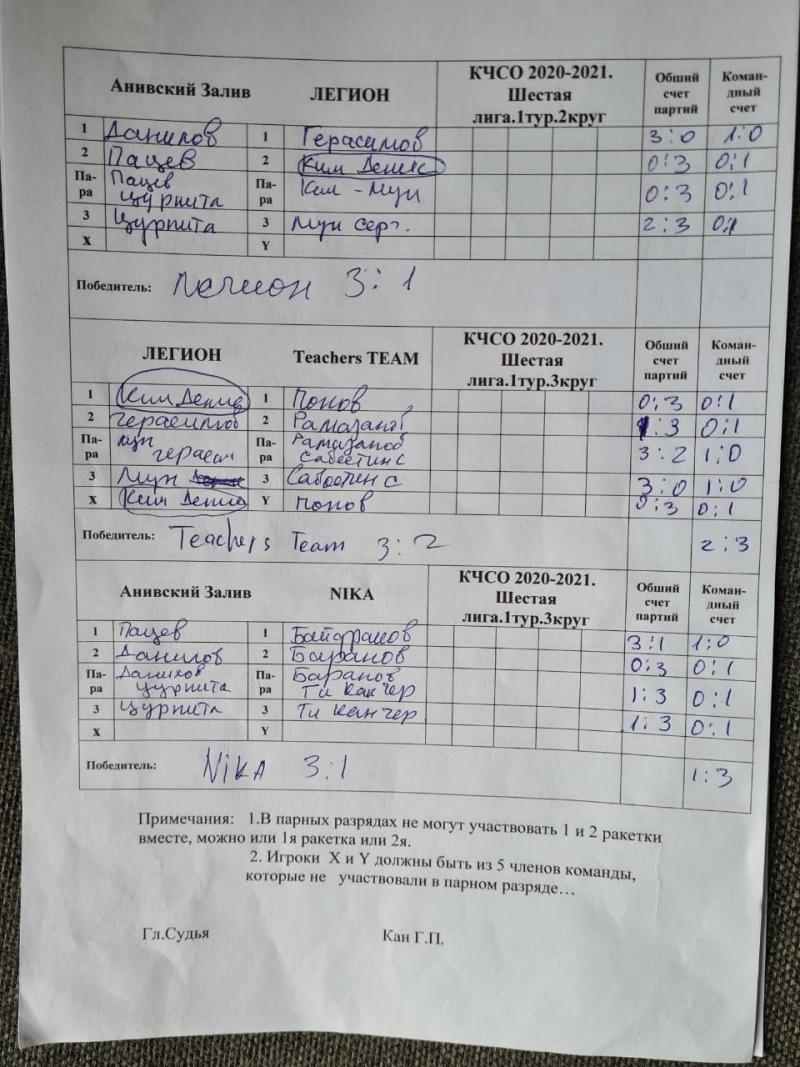 Анивский Залив ЛЕГИОН КЧСО 2020-2021. Шестая лига.1тур.2круг Общий счет партий Коман-дный счет
1 Данилов 1 Герасимов 3:0 1:0
2 Пацев 2 Ким Денис 0:3 0:1
Па-ра Пацев Цурпита Па-ра Ким - Мун 0:3 0:1
3 Цурпита 3 Мун Серг. 2:3 0:1
X Y
Победитель: Легион 3:1
ЛЕГИОН Teachers TEAM КЧСО 2020-2021. Шестая лига.1тур.3круг Общий счет партий Коман-дный счет
1 Ким Денис 1 Попов 0:3 0:1
2 Герасимов 2 Рамазанов 1:3 0:1
Па-ра Мун герасим Па-ра Рамазанов 3:2 1:0
3 Мун 3 3:0 1:0
X Ким Денис Y Попов 0:3 0:1
Победитель: Teachers Team 3:2 2:3
Анивский Залив NIKA КЧСО 2020-2021. Шестая лига.1тур.3круг Общий счет партий Коман-дный счет
1 Пацев 1 3:1 1:0
2 Данилов 2 Баранов 0:3 0:1
Па-ра Данилов Цурпита Па-ра Баранов Ти Кан чер 1:3 0:1
3 Цурпита 3 Ти Кан чер 1:3 0:1
X Y
Победитель: NiKA 3:1 1:3
Примечания: 1.В парных разрядах не могут участвовать 1 и 2 ракетки
вместе, можно или 1я ракетка или 2я.
2. Игроки X и Y должны быть из 5 членов команды,
которые не участвовали в парном разряде…
Гл.Судья Кан Г.П.